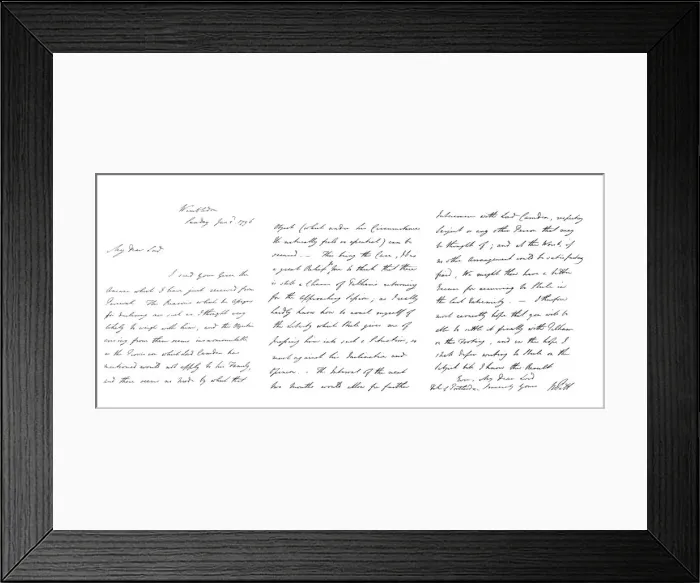 Wimbledon
Sunday Jan.
My Dear Lord
I send you here the
Answer which I have just received from
The Reasons which he assigns
for declining are such as I thought very
likely to weigh with him, and the
arising from them seems insurmountable
as the Provision which Lord Camden has
mentioned would all apply to his Family,
and there seems no mode by which that
Object (which under his Circumstances
He naturally feels so essential) can be
secured. — This being the Case, It is
a great Relief to me to think that there
is still a Chance of Pelham's returning
for the approaching Session, as I really
hardly know how to avail myself of
the Liberty which Steele gives me of
pressing him into such a Situation, so
much against his Inclination and
Opinion. — The Interval of the next
two Months would allow for further
Intercourse with Lord Camden, respecting
Serjeant or any other Person that may
be thought of; and at the Worst if
no other Arrangement could be satisfactory
fixed, We might then have a better
Ground for recurring to Steele in
the last Extremity. — I therefore
most earnestly hope that you will be
able to settle it finally with Pelham
on this Footing, and in this hope I
shall defer writing to Steele on the
Subject till I know the Result
Ever, My Dear Lord
Sincerely Yours
W Pitt